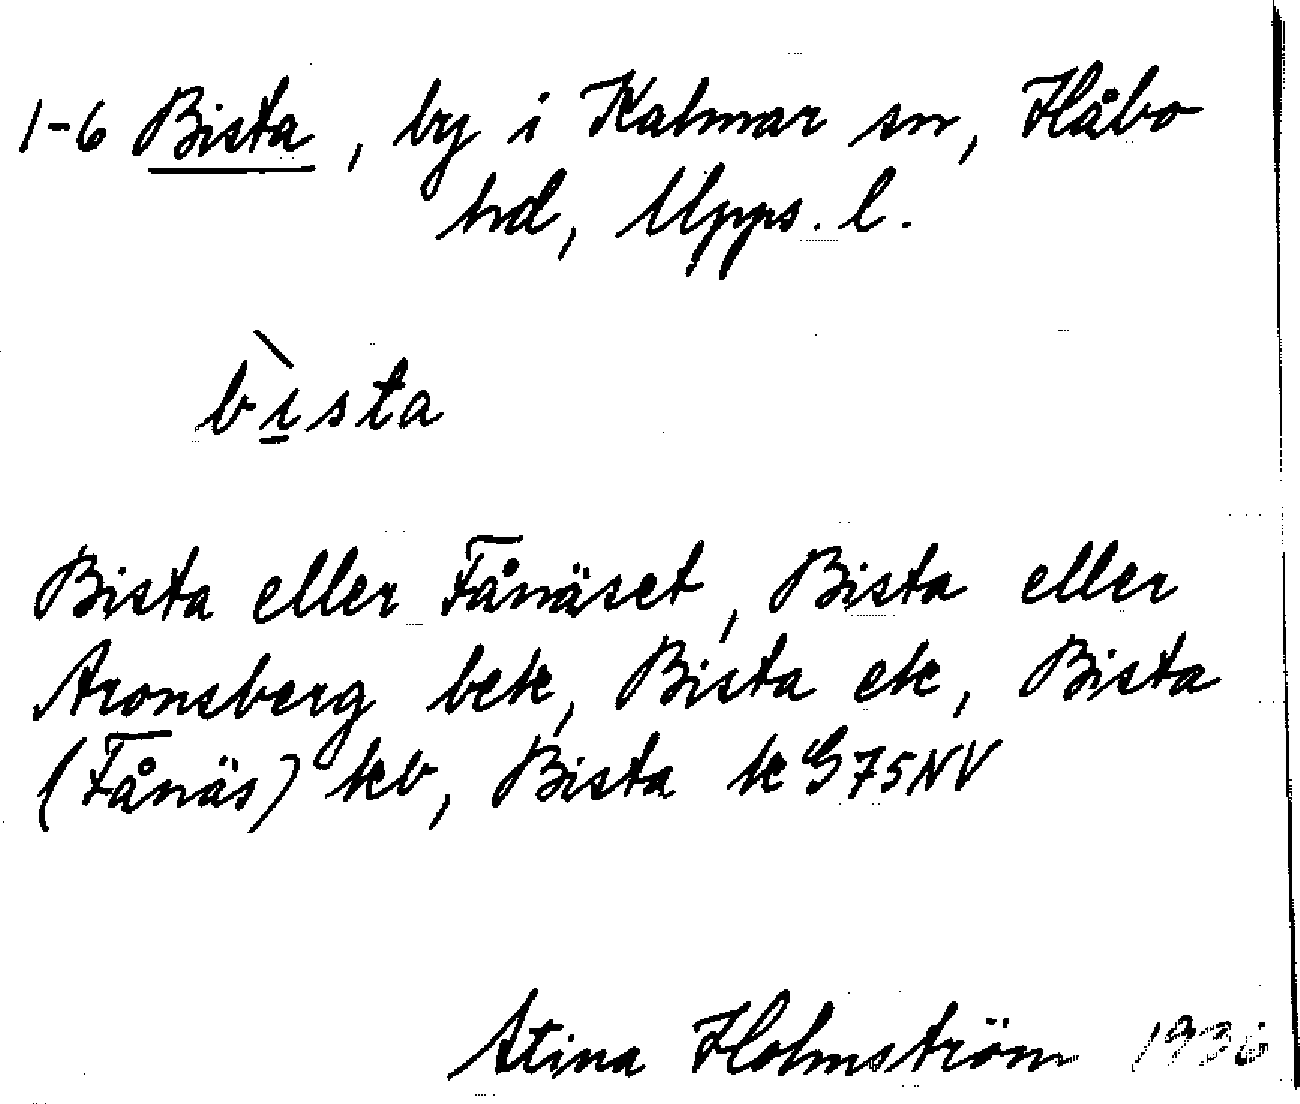 1-6 Bista, by i Kalmar sn, Håbo
hrd, Upps. l.
bı̠̀sta
Bista eller Fånäset, Bista eller
Aronsberg bek, Bista ek, Bista
(Fånäs) kb, Bista k G75NV
Stina Holmström 1936